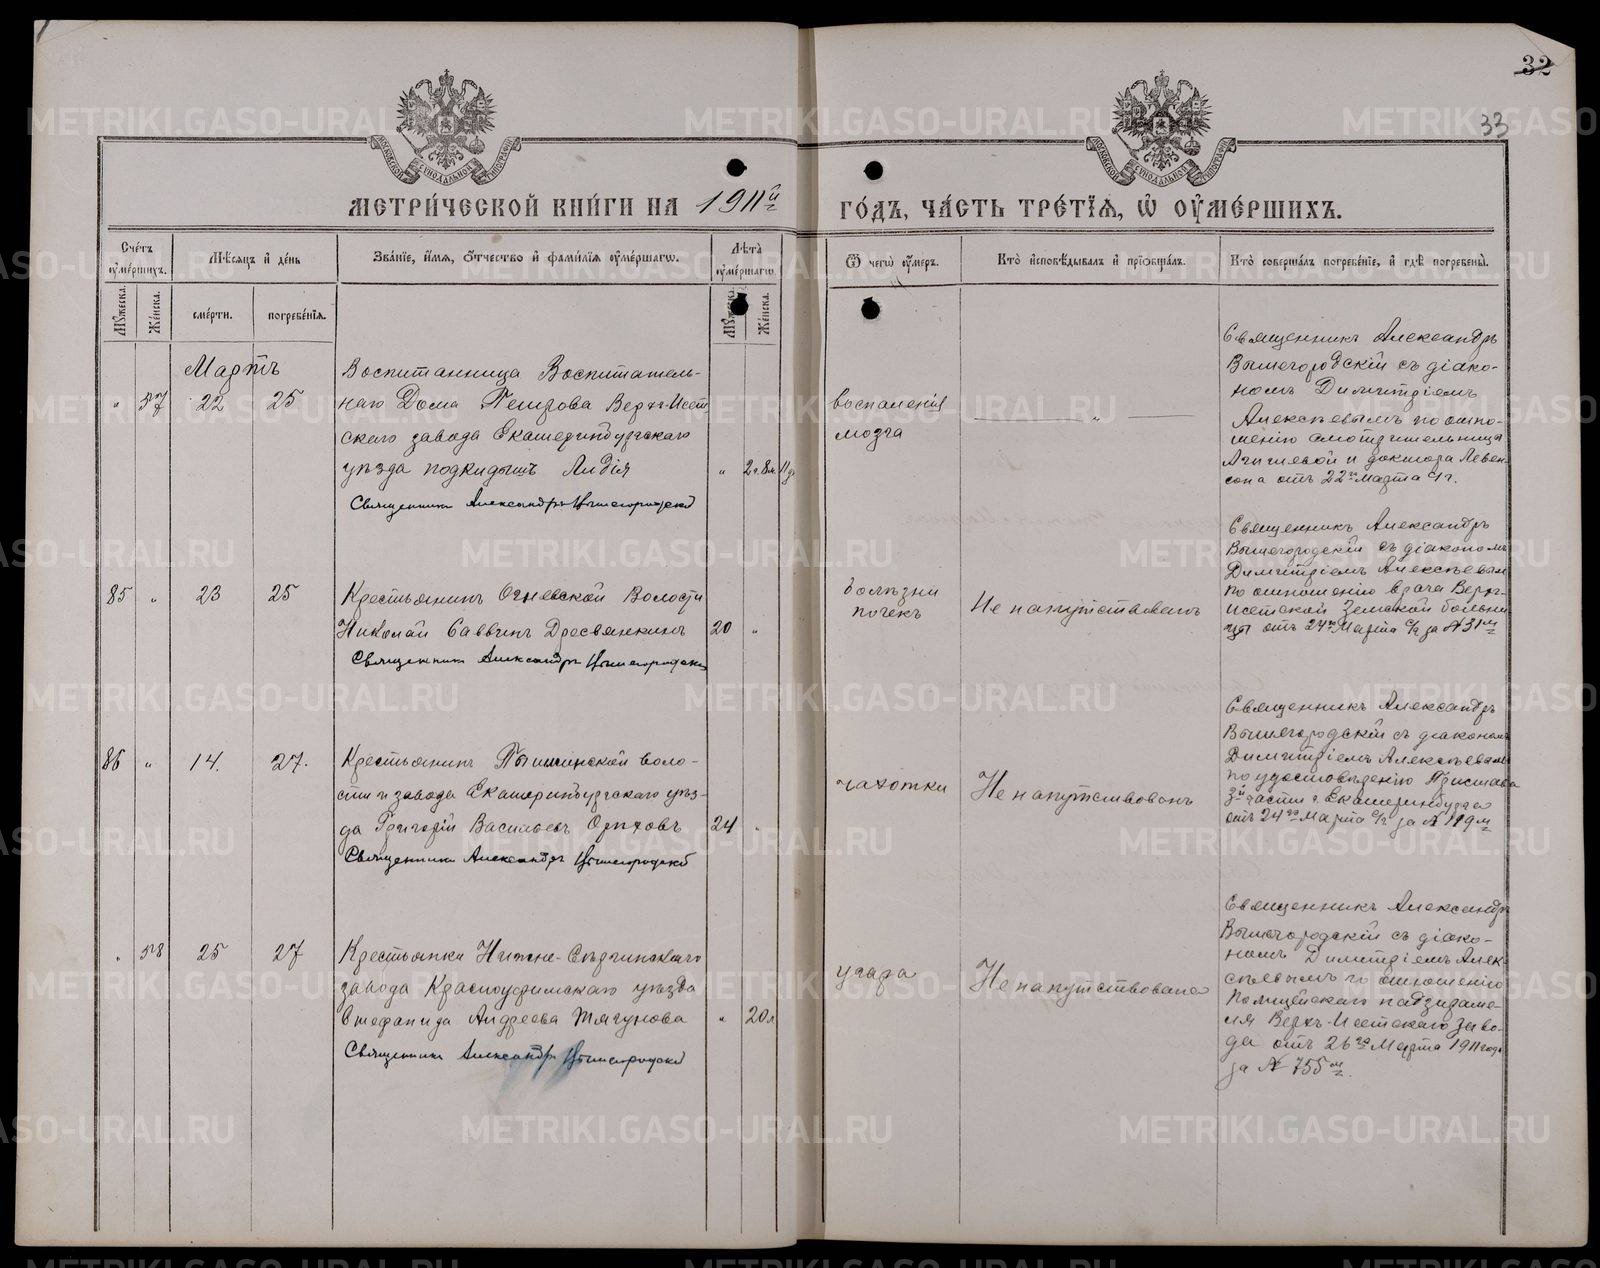 32
33
МОСКОВСКОЙ СѴНОДАЛЬНОЙ ТИПОГРАФІИ
МОСКОВСКОЙ СѴНОДАЛЬНОЙ ТИПОГРАФІИ
МЕТРИ́ЧЕСКОЙ КНИ́ГИ НА 1911й
ГО́ДЪ, ЧА́СТЬ ТРЕ́ТІЯ, Ѡ ОУМЕ́РШИХЪ.
Сче́тъ оуме́ршихъ.
Мѣ́сяцъ и де́нь
Зва́ніе, и́мя, о́тчество и фами́лія оуме́ршагѡ.
Лѣ́та оуме́ршагѡ.
Ѿ чегѡ̀ оу́меръ.
Кто̀ исповѣ́дывалъ и пріобща́лъ.
Кто̀ соверша́лъ погребе́ніе, и гдѣ̀ погребены̀.
Мꙋ́жеска.
Же́нска.
сме́рти.
погребе́нія.
Мꙋ́жеска.
Же́нска.
Мартъ
" 57 22 25
Воспитанница Воспитатель-
наго Дома Петрова Верхъ-Исет
скаго завода Екатеринбургскаго
уѣзда подкидышъ Лидія
" 2 г. 8 м. 11 д.
Священникъ Александръ Вышегородскій
воспаленія
мозга
"
Священникъ Александръ
Вышегородскій съ діако-
номъ Димитріемъ
Алексѣевымъ по отно-
шенію смотрительницы
и доктора Левен
сона отъ 22го Марта с/г.
85 " 23 25
Крестьянинъ Огневской Волости
Николай Саввинъ Дресвянкинъ
20 "
Священникъ Александръ Вышегородскій
болѣзни
почекъ
Не напутствованъ
Священникъ Александръ
Вышегородскій съ діакономъ
Димитріемъ Алексѣевым
по отношенію врача Верхъ-
Исетской Земской больни
цы отъ 24го Марта с/г за № 31м
86 " 14. 27.
Крестьянинъ Пышминской воло-
сти и завода Екатеринбургскаго уѣз-
да Григорій Васильевъ Орѣховъ
24 "
Священникъ Александръ Вышегородскій
чахотки
Не напутствованъ
Священникъ Александръ
Вышегородскій съ діаконом
Димитріемъ Алексѣевым
по удостовѣренію Пристава
3й части г. Екатеринбурга
отъ 24го Марта с/г за № 119м
" 58 25 27
Крестьянка Нижне-Сергинскаго
завода Красноуфимскаго уѣзда
Стефанида Андреева Тягунова
" 20 л
Священникъ Александръ Вышегородскій
угара
Не напутствована
Священникъ Александръ
Вышегородскій съ діако-
номъ Димитріемъ Алек-
сѣевымъ по отношенію
Полицейскаго надзирате-
ля Верхъ-Исетскаго заво-
да отъ 26го Марта 1911 года
за № 755м.
METRIKI.GASO-URAL.RU